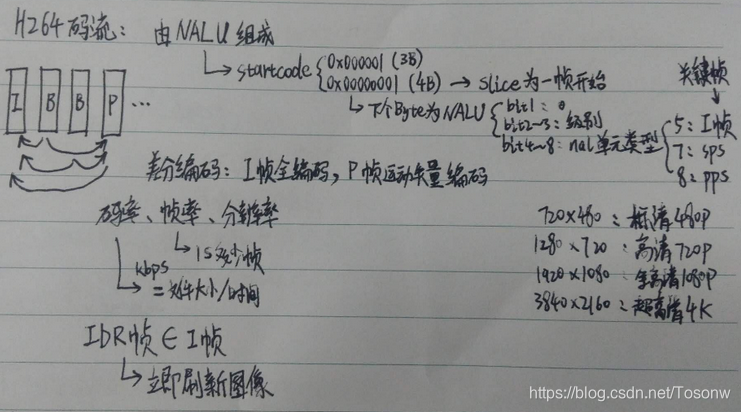 H264码流：由NALU组成
startcode
0x000001 (3B)
0x00000001 (4B) → slice为一帧开始
下个Byte为NALU
bit1：0
bit2~3：级别
bit4~8：nal单元类型
关键帧
5：I帧
7：sps
8：pps
I B B P ...
差分编码：I帧全编码，P帧运动矢量编码
码率、帧率、分辨率
1s多少帧
kbps
=文件大小/时间
720×480：标清480P
1280×720：高清720P
1920×1080：全高清1080P
3840×2160：超高清4K
IDR帧∈I帧
立即刷新图像
https://blog.csdn.net/Tosonw